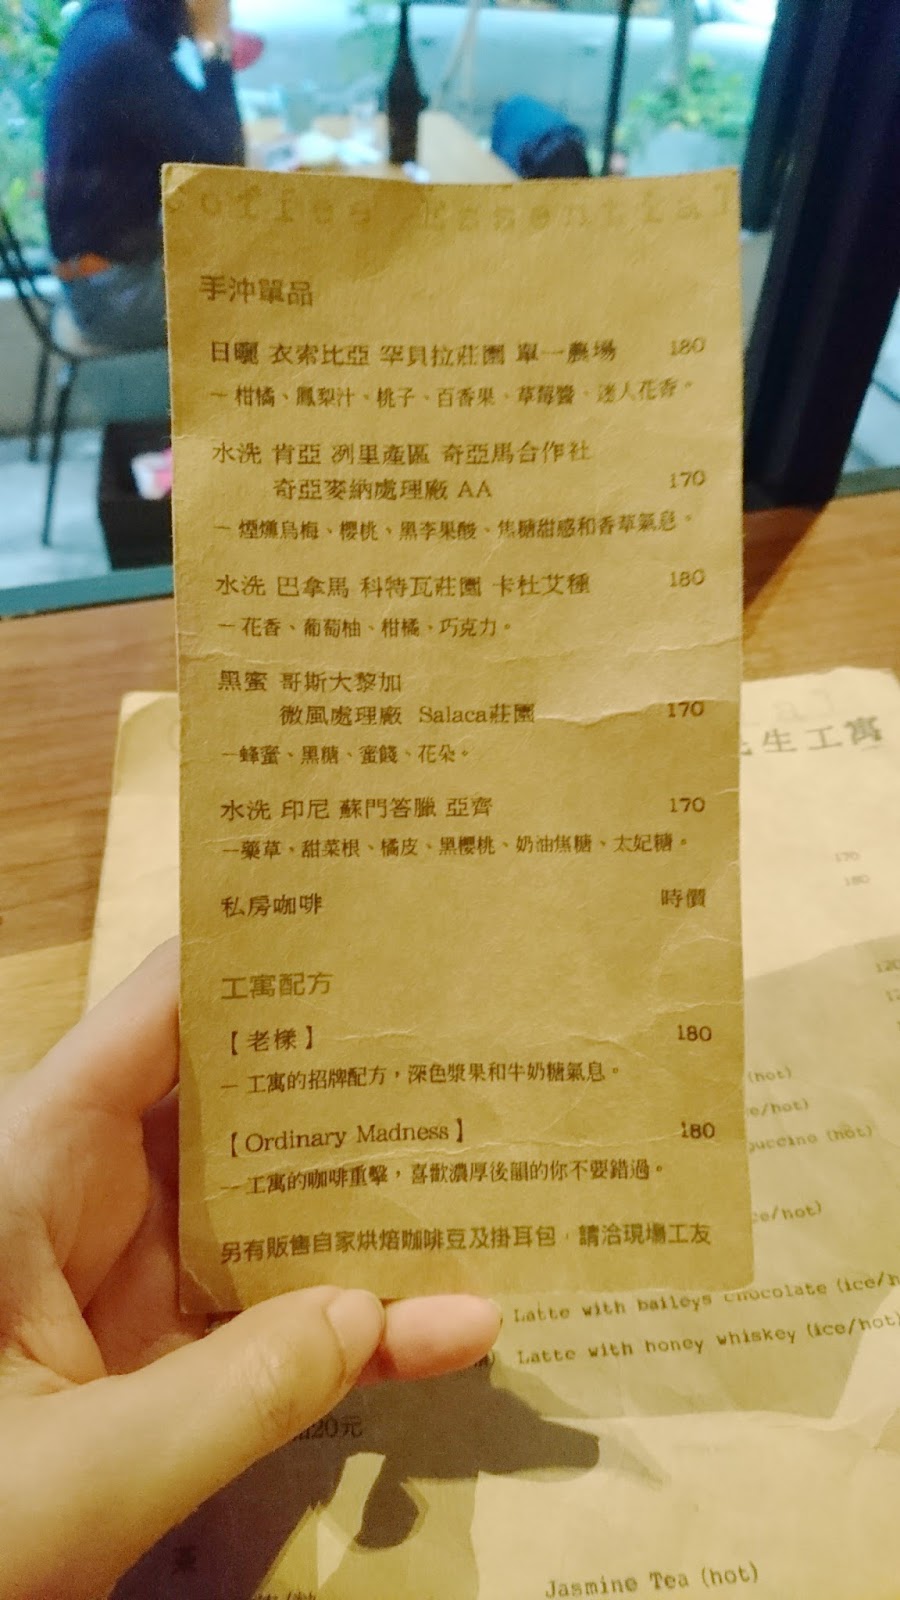 offee Essential
手沖單品
日曬 衣索比亞 罕貝拉莊園 單一農場 180
－柑橘、鳳梨汁、桃子、百香果、草莓醬、迷人花香。
水洗 肯亞 冽里產區 奇亞馬合作社
奇亞麥納處理廠 AA 170
－煙燻烏梅、櫻桃、黑李果酸、焦糖甜感和香草氣息。
水洗 巴拿馬 科特瓦莊園 卡杜艾種 180
－花香、葡萄柚、柑橘、巧克力。
黑蜜 哥斯大黎加
微風處理廠 Salaca莊園 170
－蜂蜜、黑糖、蜜餞、花朵。
水洗 印尼 蘇門答臘 亞齊 170
－藥草、甜菜根、橘皮、黑櫻桃、奶油焦糖、太妃糖。
私房咖啡 時價
工寓配方
【老樣】 180
－工寓的招牌配方，深色漿果和牛奶糖氣息。
【Ordinary Madness】 180
－工寓的咖啡重擊，喜歡濃厚後韻的你不要錯過。
另有販售自家烘焙咖啡豆及掛耳包，請洽現場工友
生工寓
170
180
120
(hot)
e/hot)
uccino (hot)
ce/hot)
Latte with baileys chocolate (ice/h
Latte with honey whiskey (ice/hot)
20元
Jasmine Tea (hot)